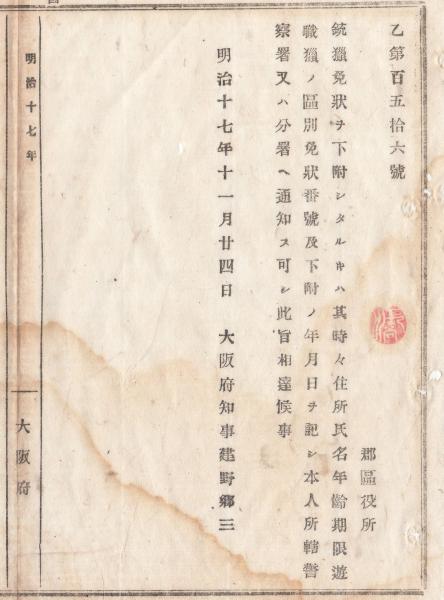 乙第百五拾六號
郡區役所
銃獵免狀ヲ下附シタルキハ其時々住所氏名年齡期限遊
職獵ノ區別免狀番號及下附ノ年月日ヲ記シ本人所轄警
察署又ハ分署ヘ通知ス可シ此旨相達候事
明治十七年十一月廿四日 大阪府知事建野鄕三
明治十七年
大阪府